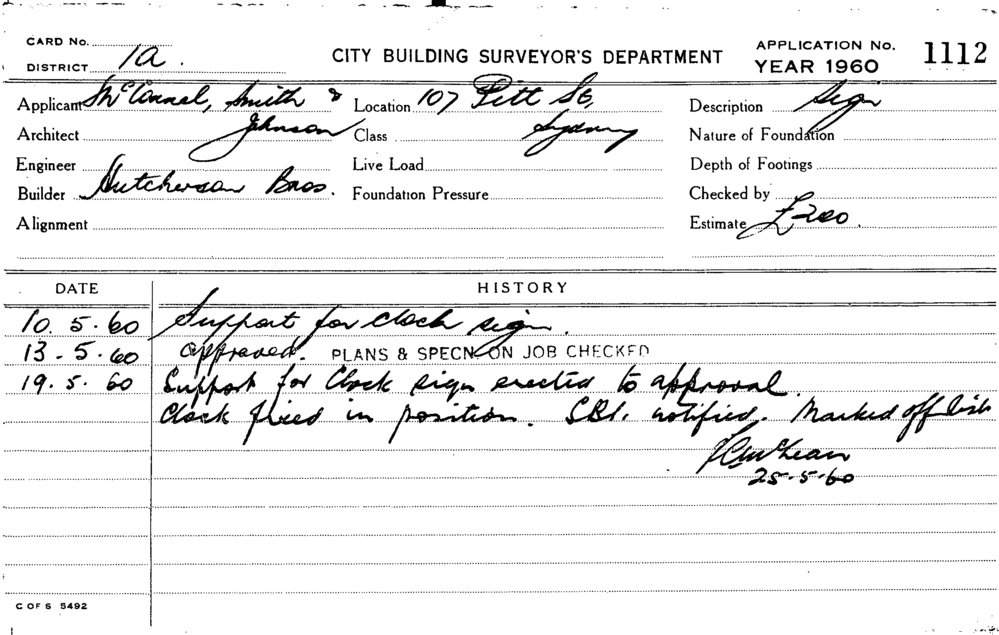 CARD No.
DISTRICT 1a.
CITY BUILDING SURVEYOR'S DEPARTMENT
APPLICATION No. 1112
YEAR 1960
Applicant McConnel, Smith & Location 107 Pitt St, Description Sign
Architect Johnson Class Sydney Nature of Foundation
Engineer Live Load Depth of Footings
Builder Hutcherson Bros. Foundation Pressure Checked by
Alignment Estimate £200.
DATE HISTORY
10.5.60 Support for clock sign.
13.5.60 Approved. PLANS & SPECN ON JOB CHECKED
19.5.60 Support for Clock sign erected to approval.
Clock fixed in position. notified. Marked off list
McLean
25-5-60
C OF S 5492